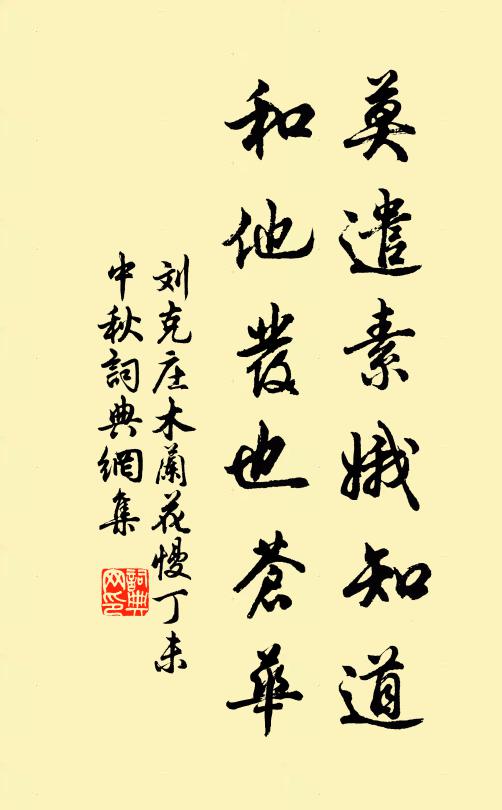 莫遣素娥知道
和他發也蒼華
刘克庄木蘭花慢丁未
中秋詞典網集
詞典网印